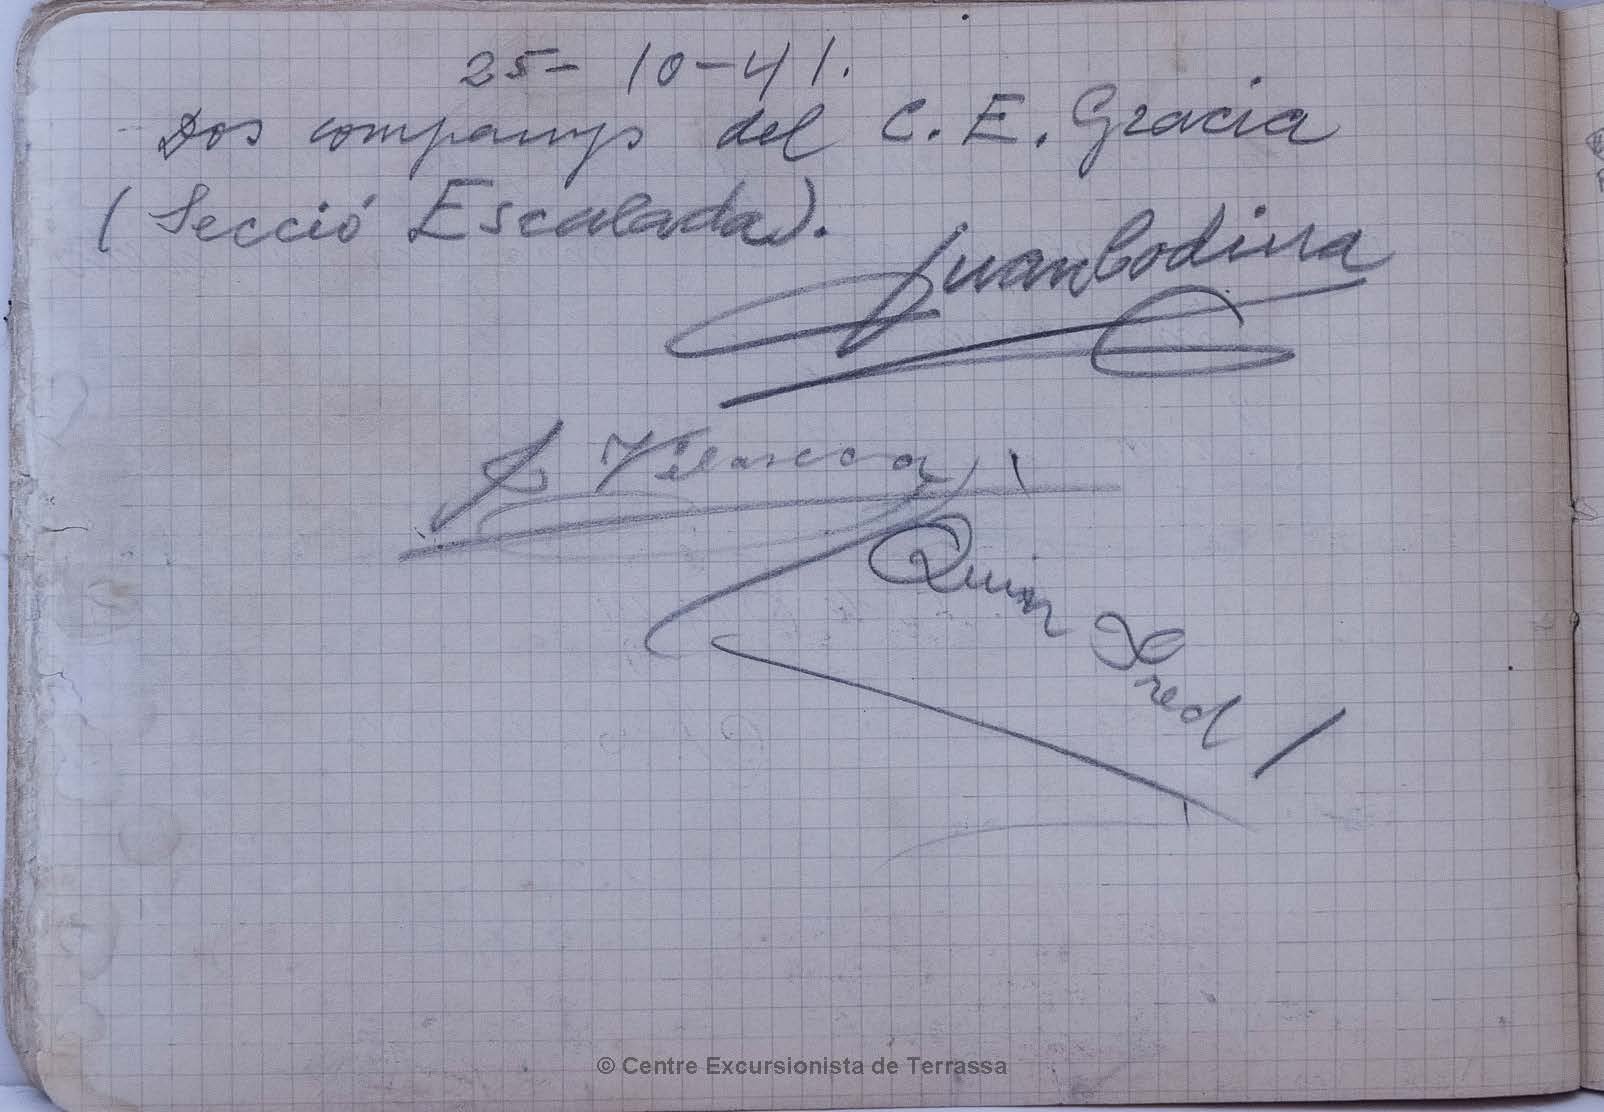 25-10-41.
Dos companys del C. E. Gracia
(Secció Escalada).
Juan Codina
J. Vilaseca
Quim Fred
© Centre Excursionista de Terrassa